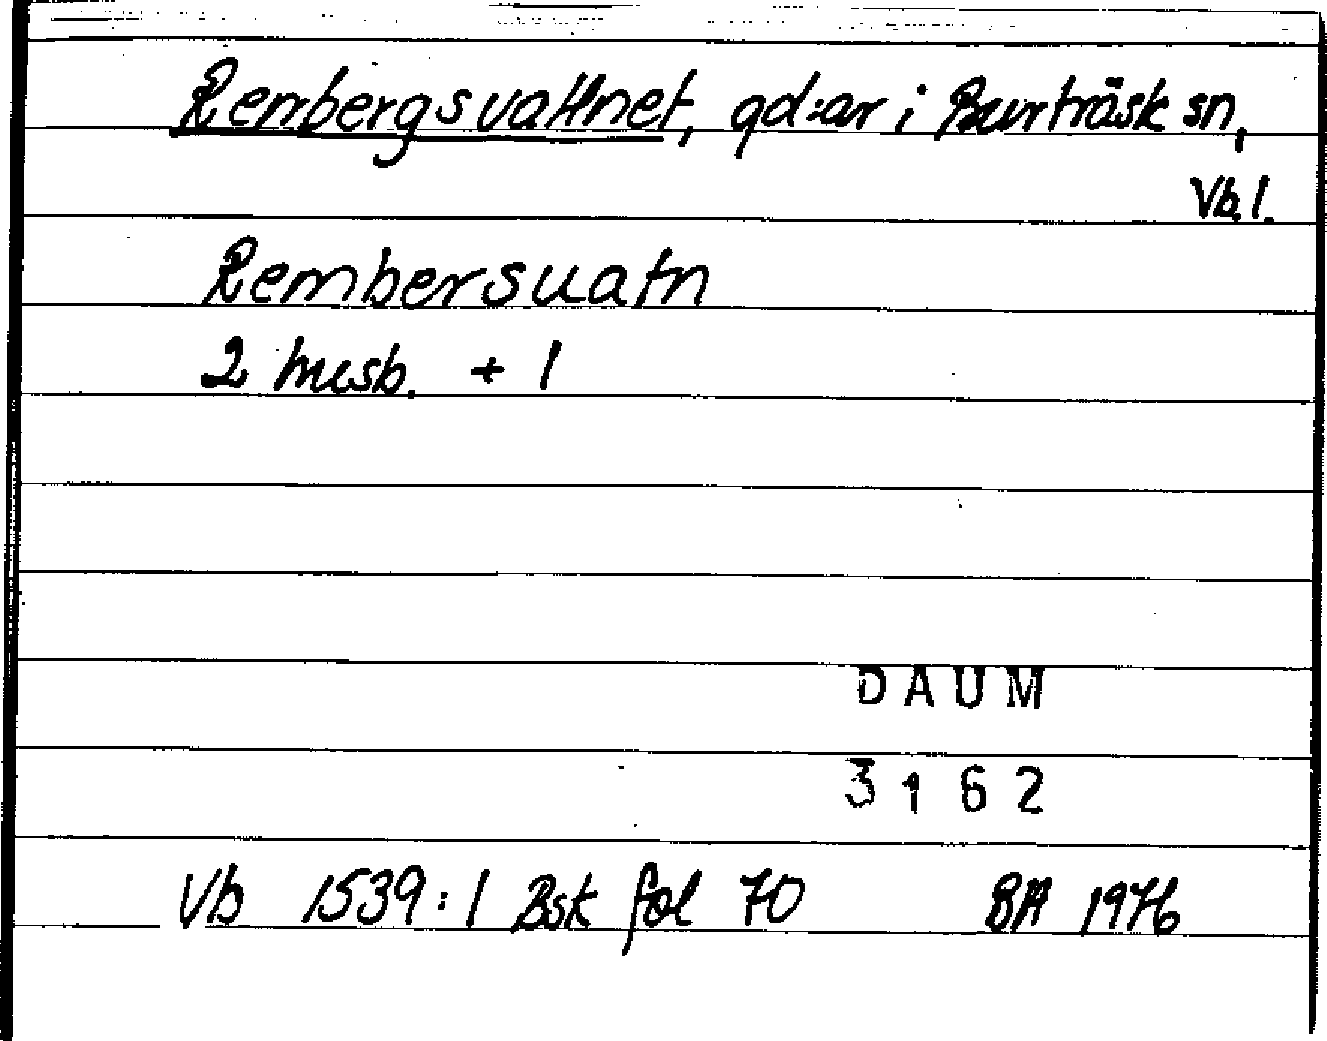 Rembergsvattnet, gd:ar i Burträsk sn,
Vb. l.
Rembersuatn
2 husb. + 1
DAUM
3162
Vb 1539:1 Bsk fol 70 BA 1976